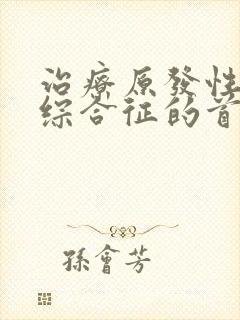 治療原發性
綜合征的首
孫會芳